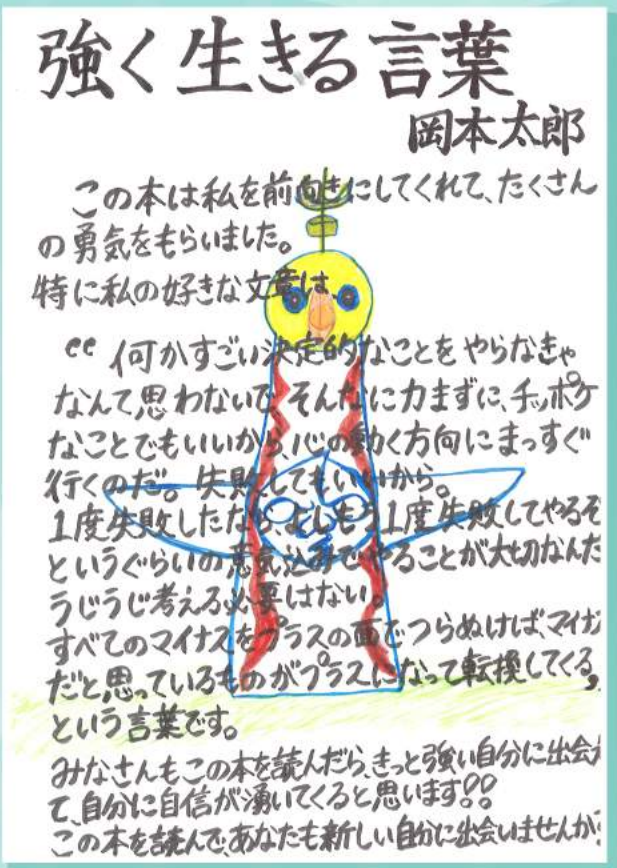 強く生きる言葉
岡本太郎
この本は私を前向きにしてくれて、たくさん
の勇気をもらいました。
特に私の好きな文章は、
“何かすごい決定的なことをやらなきゃ
なんて思わないで、そんなに力まずに、チッポケ
なことでもいいから、心の動く方向にまっすぐ
行くのだ。失敗してもいいから。
1度失敗したなら、よしもう1度失敗してやるぞ
というぐらいの意気込みでやることが大切なんだ
うじうじ考える必要はない。
すべてのマイナスをプラスの面でつらぬけば、マイナ
だと思っているものがプラスになって転換してくる〟
という言葉です。
みなさんもこの本を読んだら、きっと強い自分に出会え
て、自分に自信が湧いてくると思います!!
この本を読んで、あなたも新しい自分に出会いませんか